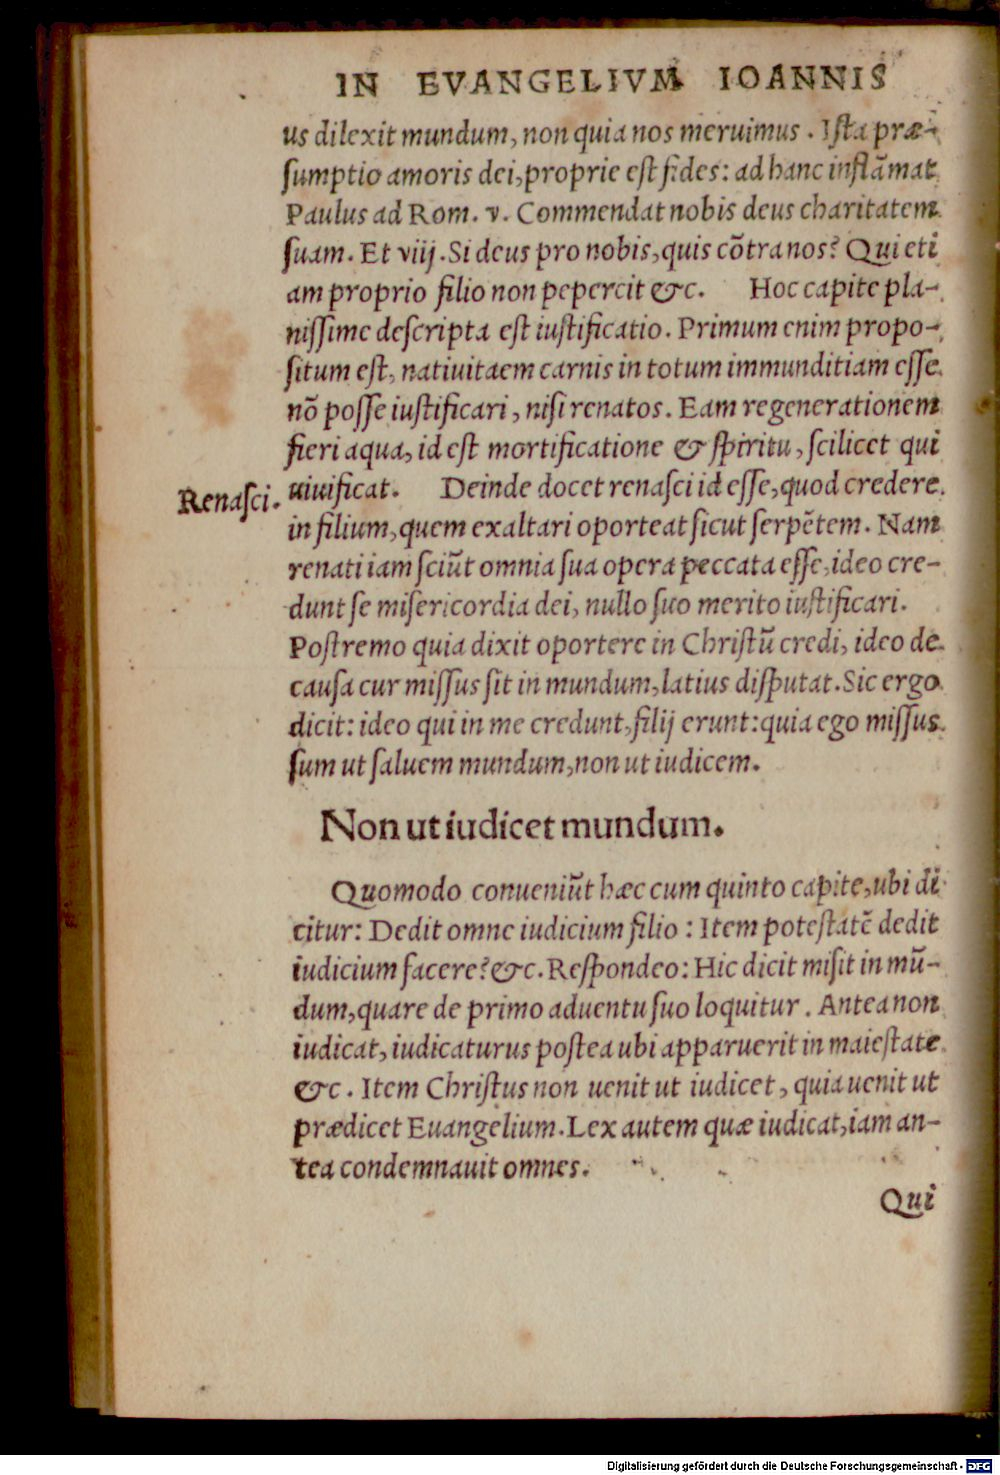 IN EVANGELIVM IOANNIS
us dilexit mundum, non quia nos meruimus. Ista præ-
sumptio amoris dei, proprie est fides: ad hanc inflāmat
Paulus ad Rom. v. Commendat nobis deus charitatem
suam. Et viij. Si deus pro nobis, quis cōtra nos? Qui eti
am proprio filio non pepercit &c. Hoc capite pla-
nissime descripta est iustificatio. Primum enim propo-
situm est, natiuitaem carnis in totum immunditiam esse
nō posse iustificari, nisi renatos. Eam regenerationem
fieri aqua, id est mortificatione & spiritu, scilicet qui
Renasci. uiuificat. Deinde docet renasci id esse, quod credere
in filium, quem exaltari oporteat sicut serpētem. Nam
renati iam sciūt omnia sua opera peccata esse, ideo cre-
dunt se misericordia dei, nullo suo merito iustificari.
Postremo quia dixit oportere in Christū credi, ideo de
causa cur missus sit in mundum, latius disputat. Sic ergo
dicit: ideo qui in me credunt, filij erunt: quia ego missus
sum ut saluem mundum, non ut iudicem.
Non ut iudicet mundum.
Quomodo conueniūt hæc cum quinto capite, ubi di
citur: Dedit omne iudicium filio: Item potestatē dedit
iudicium facere? &c. Respondeo: Hic dicit misit in mū-
dum, quare de primo aduentu suo loquitur. Antea non
iudicat, iudicaturus postea ubi apparuerit in maiestate
&c. Item Christus non uenit ut iudicet, quia uenit ut
prædicet Euangelium. Lex autem quæ iudicat, iam an-
tea condemnauit omnes.
Qui
Digitalisierung gefördert durch die Deutsche Forschungsgemeinschaft - DFG